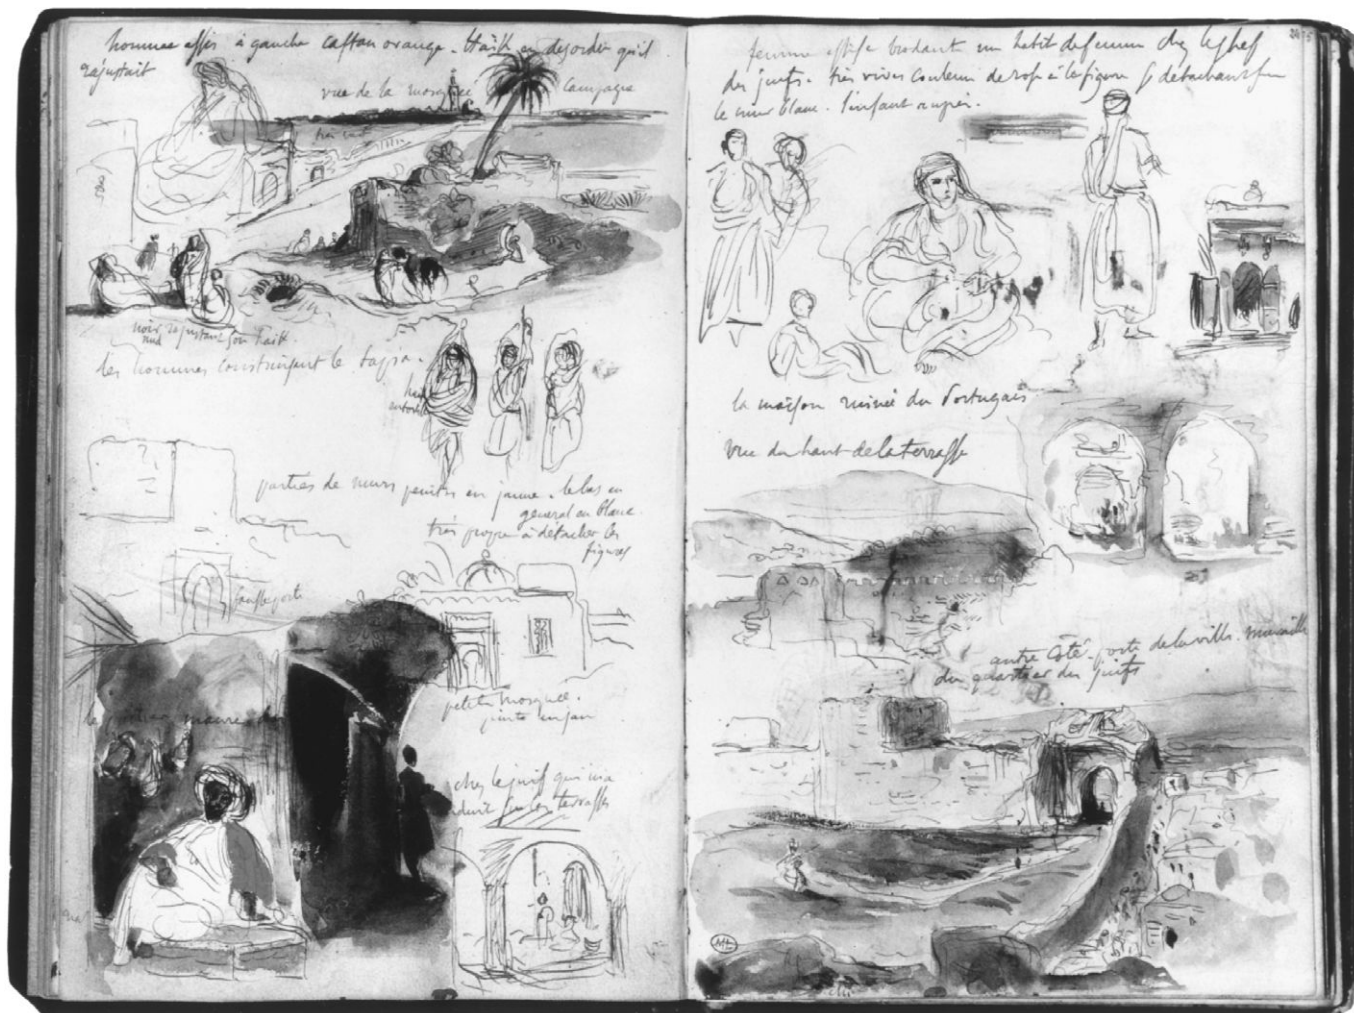 hommes assis à gauche caftan orange. Haïk en desordre qu'il
rajustait
vue de la mosquée campagne
noir rajustant son haik
nud
les hommes construisant le tapia.
parties de murs peintes en jaune. le bas en
general en blanc.
très propre à détacher les
figures
fausse porte
petite mosquée.
maure
chez le juif qui m'a
les terrasses
femme assise brodant un habit de femme chez le chef
des juifs. très vives couleurs de rose à la figure se détachant sur
le mur blanc. l'enfant auprès.
la maison ruinée du Portugais
vue du haut de la terrasse
autre côté. porte de la ville. muraille
du quartier des juifs